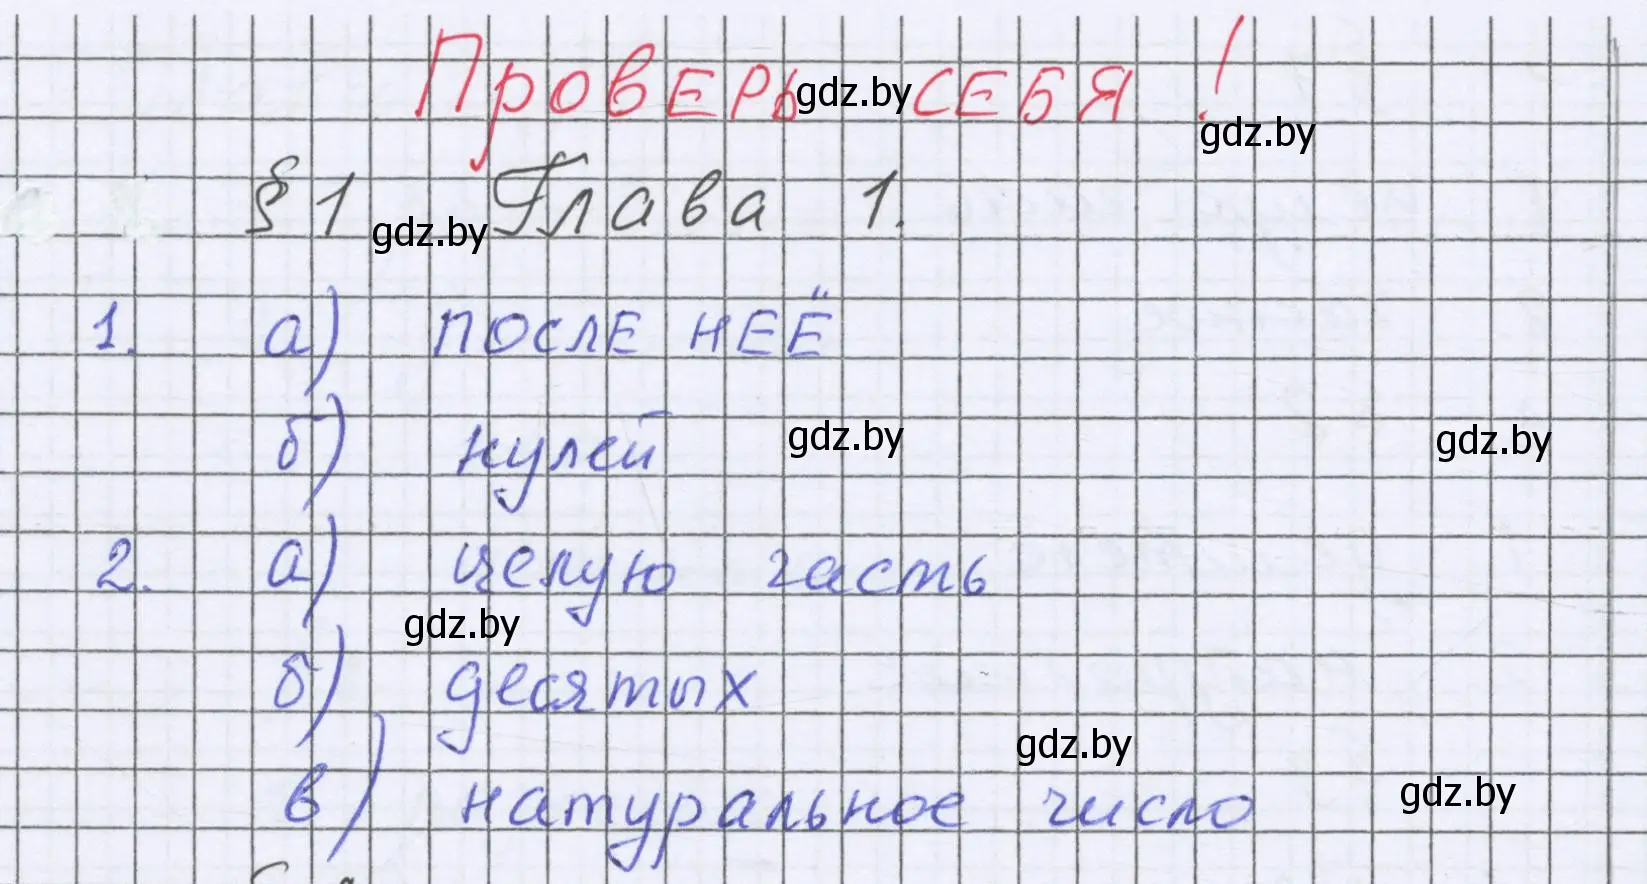 Проверь себя!
gdz.by
gdz.by
§ 1 Глава 1.
gdz.by
1. а) после неё
б) нулей
gdz.by
gdz.by
2. а) целую часть
gdz.by
б) десятых
gdz.by
в) натуральное число
gdz.by